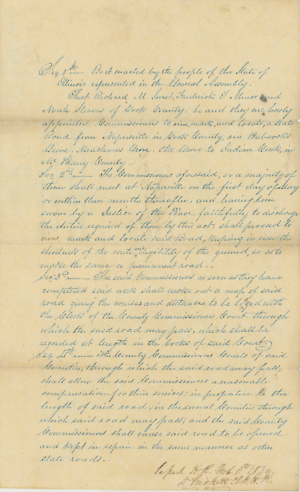 Sec 1st Be it enacted by the people of the State of
Illinois represented in the General Assembly.
That Richard M. Sweet, Frederick
of Cook County, be and they are hereby
appointed Commissioners to view, mark, and locate, a State
Road from Naperville in Cook County, via
Grove, Grove, to Indian Creek, in
McHenry County.
Sec 2nd The Commissioners aforesaid, or a majority of
them shall meet at Naperville on the first day of May
or within thereafter, and having been
sworn by a Justice of the Peace, faithfully to discharge
the duties required of them by this act, shall proceed to
view mark and locate said Road, keeping in view the
shortness of the route eligibility of the ground, so as to
make the same a permanent road.
Sec 3rd The said Commissioners as soon as they have
completed said work shall make out a map of said
road giving the courses and distances to be lodged with
the Clerk of the County Commissioners Court through
which the said road may pass, which shall be
recorded at length in the books of said Court
Sec 4th The County Commissioners Courts of said
Counties, through which the said road may pass,
shall allow the said Commissioners a reasonable
compensation for their services, in proportion to the
length of said road, in the several Counties through
which said road may pass, and the said County
Commissioners shall cause said road to be opened
and kept in repair in the same manner as other
state roads.